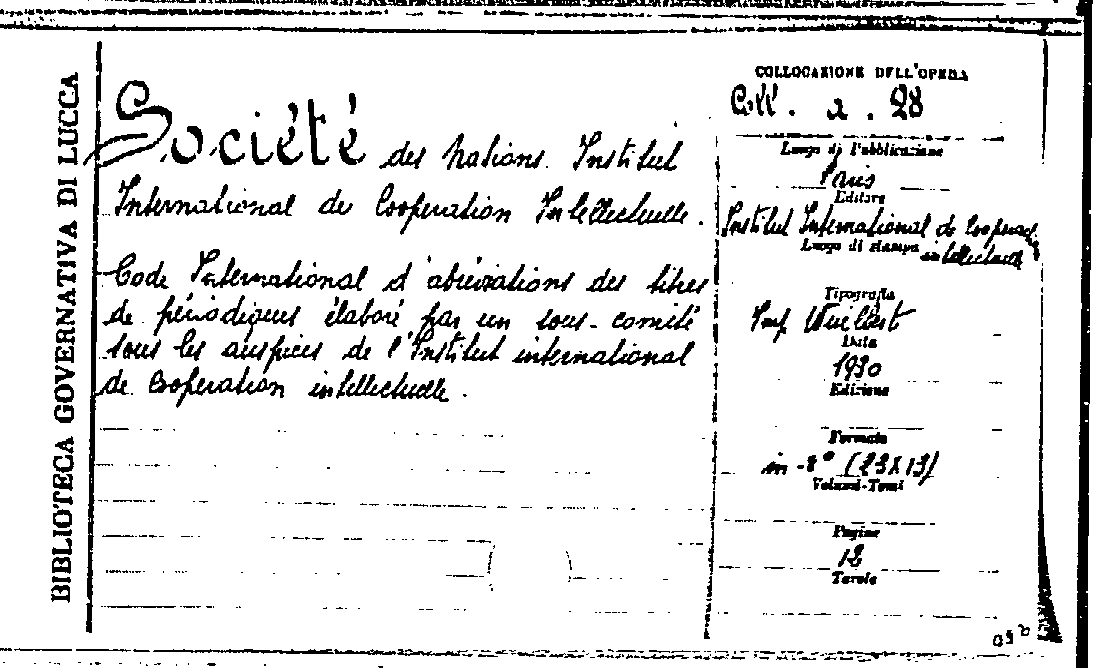 BIBLIOTECA GOVERNATIVA DI LUCCA
Société des Nations. Institut
International de Cooperation Intellectuelle.
Code International d'abréviations des titres
de périodiques élaboré par un sous-comité
sous les auspices de l'Institut international
de Cooperation intellectuelle.
COLLOCAZIONE DELL'OPERA
Coll. 2. 28
Luogo di Pubblicazione
Paris
Editore
Institut International de Cooperation
Luogo di stampa intellectuelle
Tipografia
Imp Vuibert
Data
1930
Edizione
Formato
in-8° (23X13)
Volumi-Tomi
Pagine
12
Tavole